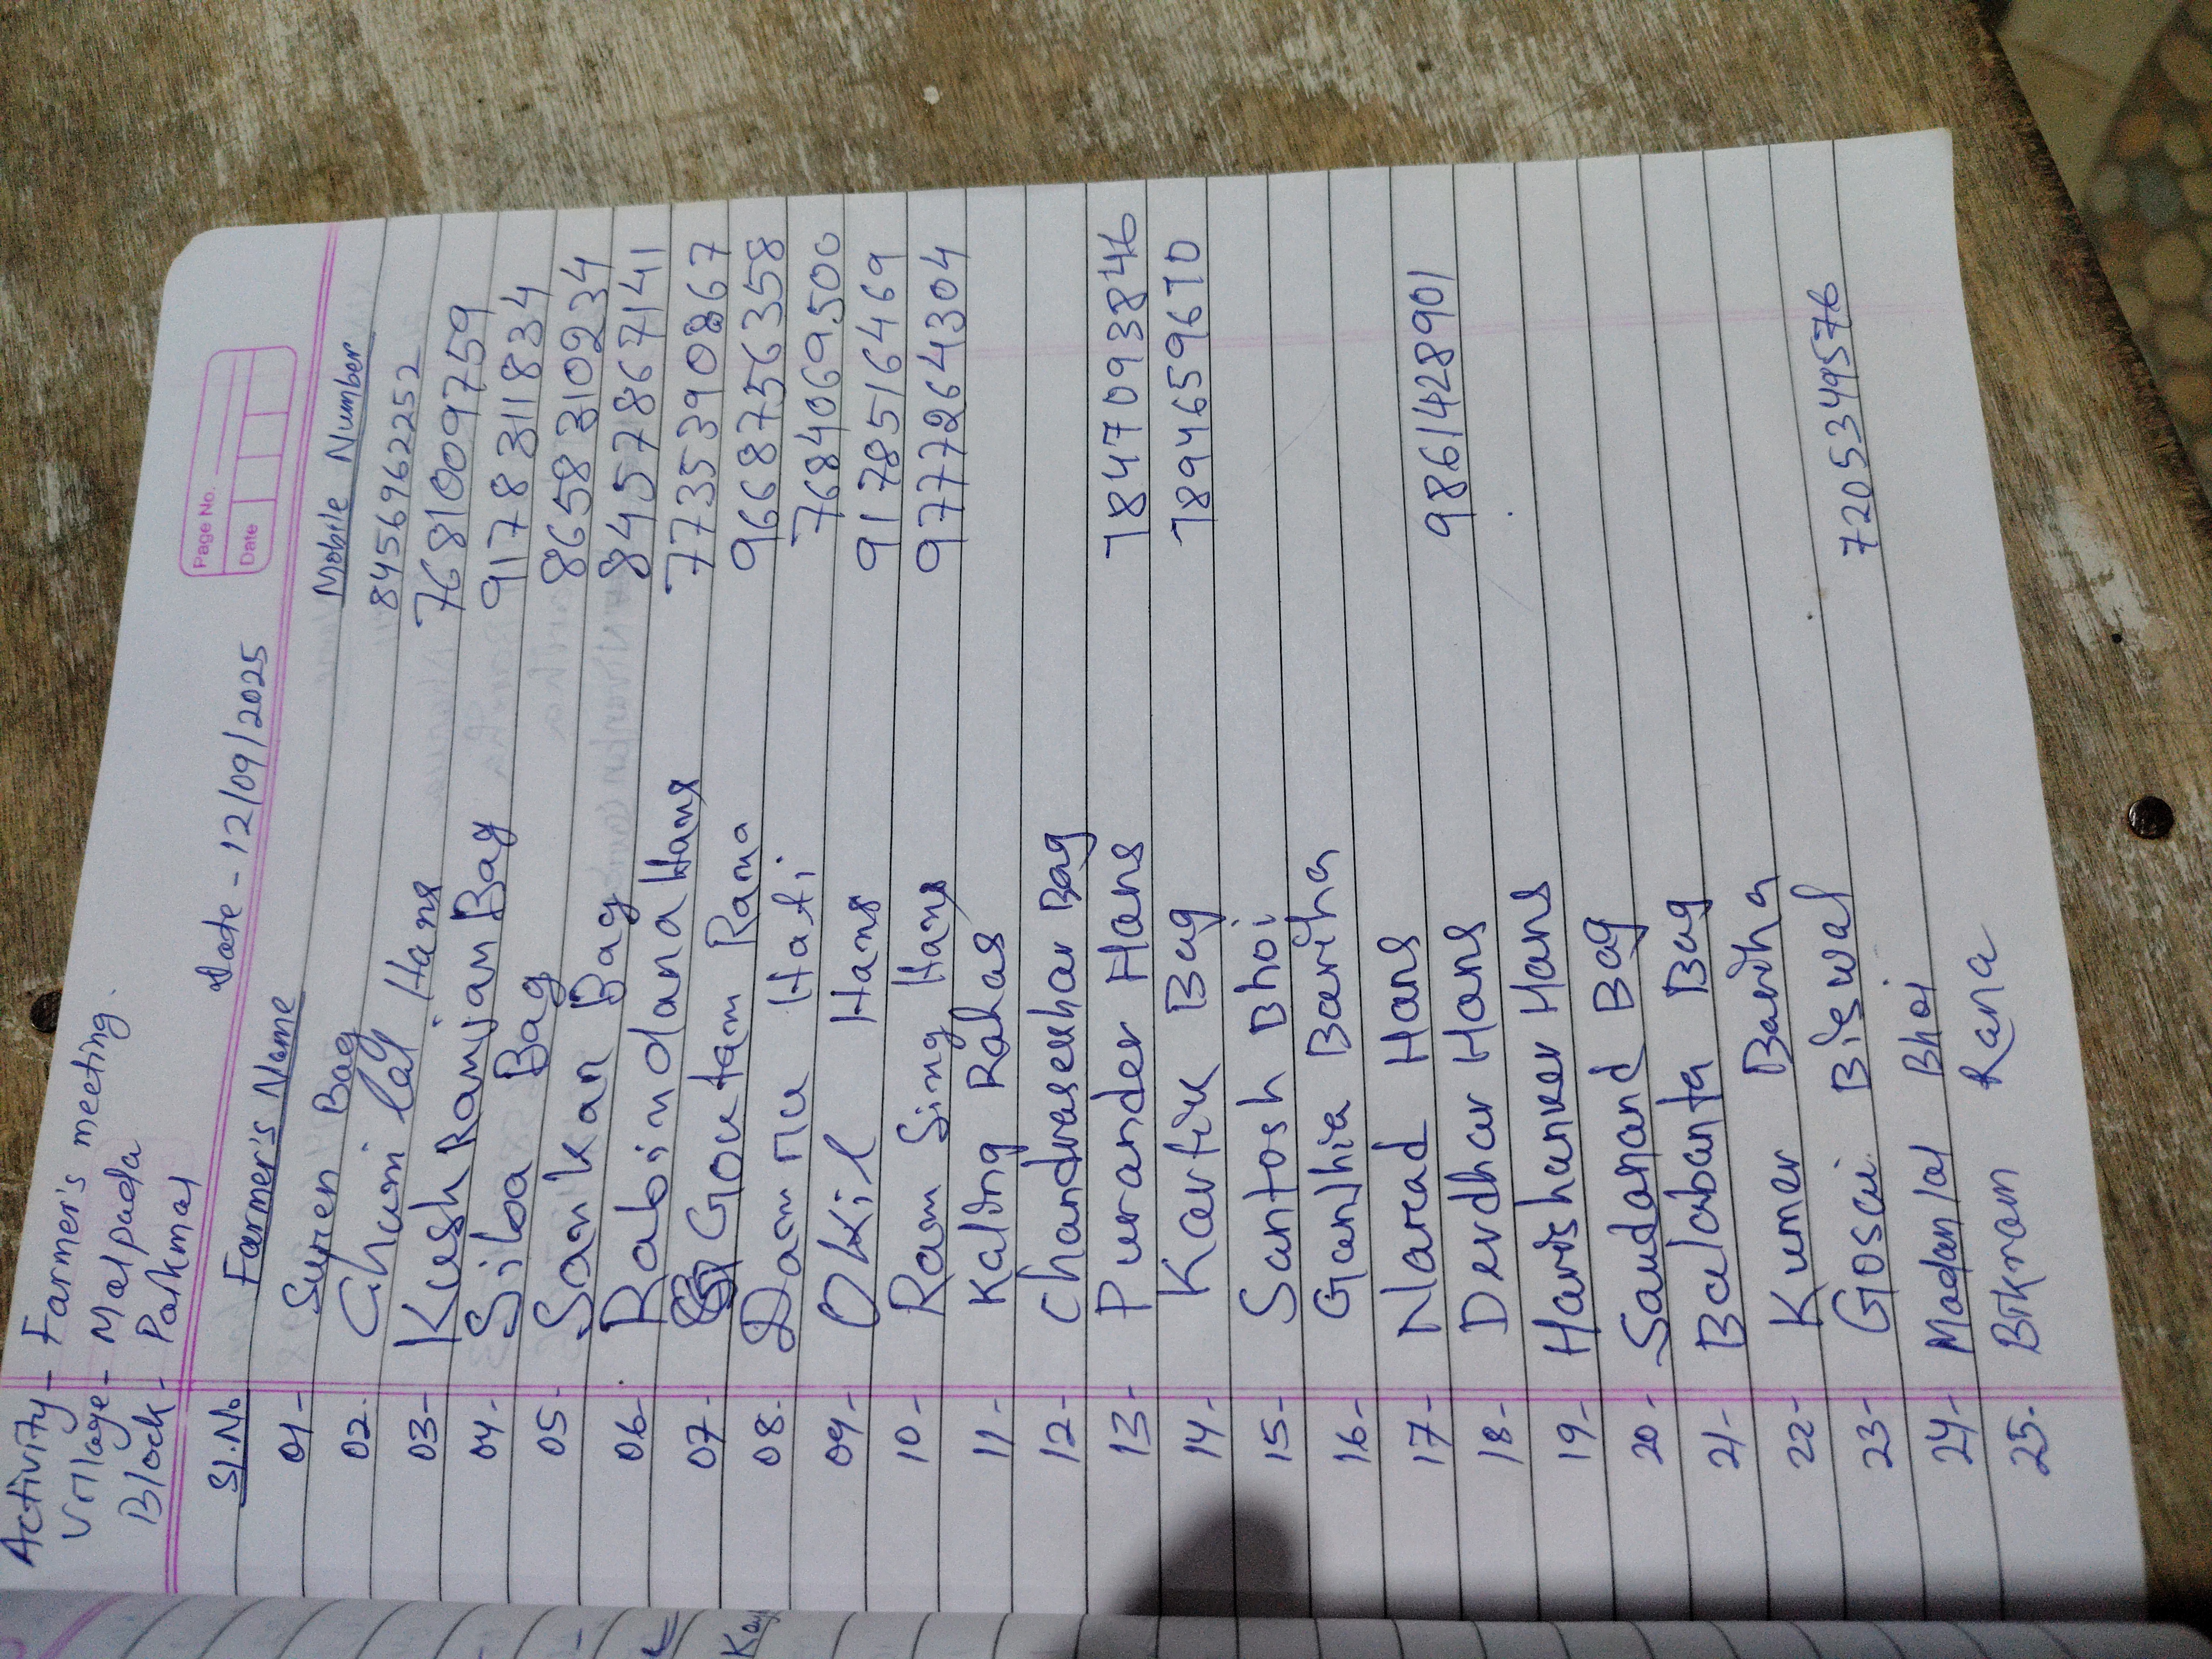 Activity - Farmer's meeting.
Village - Malpada
Block - Paikmal
Page No.
Date
Date - 12/09/2025
Sl.No Farmer's Name Mobile Number
01- Suren Bag 8456962252
02- Chuni lal Hans 7681009759
03- KushRanjan Bag 9178311834
04- Siba Bag 8658310234
05- Sankar Bag 8457867141
06- Rabindana Hans 7735390867
07- Goutam Rana 9668756358
08- Damru Hati 7684069500
09- Okil Hans 9178516469
10- Ram Sing Hans 9777264304
11- Kaling Rahas
12- Chandrasekhar Bag
13- Purander Hans 7847093846
14- Kartik Bag 7894659670
15- Santosh Bhoi
16- Gandhia Bariha
17- Narad Hans 9861428901
18- Derdhar Hans
19- Harishanker Hans
20- Saudanand Bag
21- Balabanta Bag
22- Kumer Bariha
23- Gosai Biswal 7205349576
24- Madanlal Bhoi
25- Bikram Rana
Kay